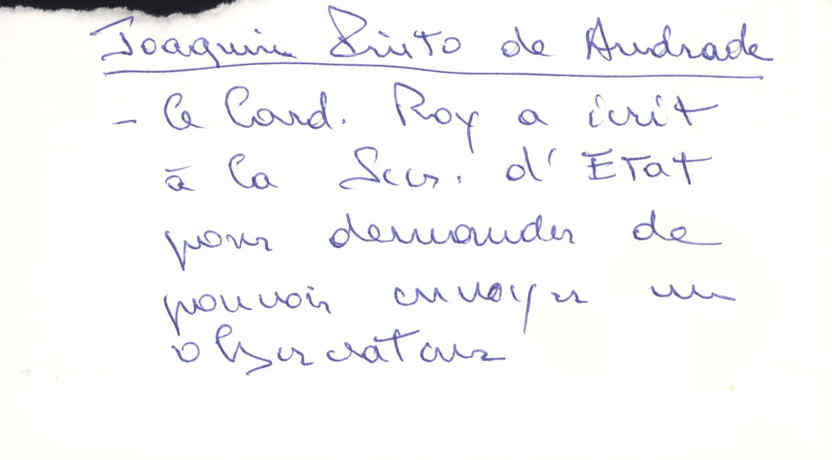 Joaquim Pinto de Andrade
- Le Card. Roy a écrit
à la Secr. d'Etat
pour demander de
pouvoir envoyer un
observateur